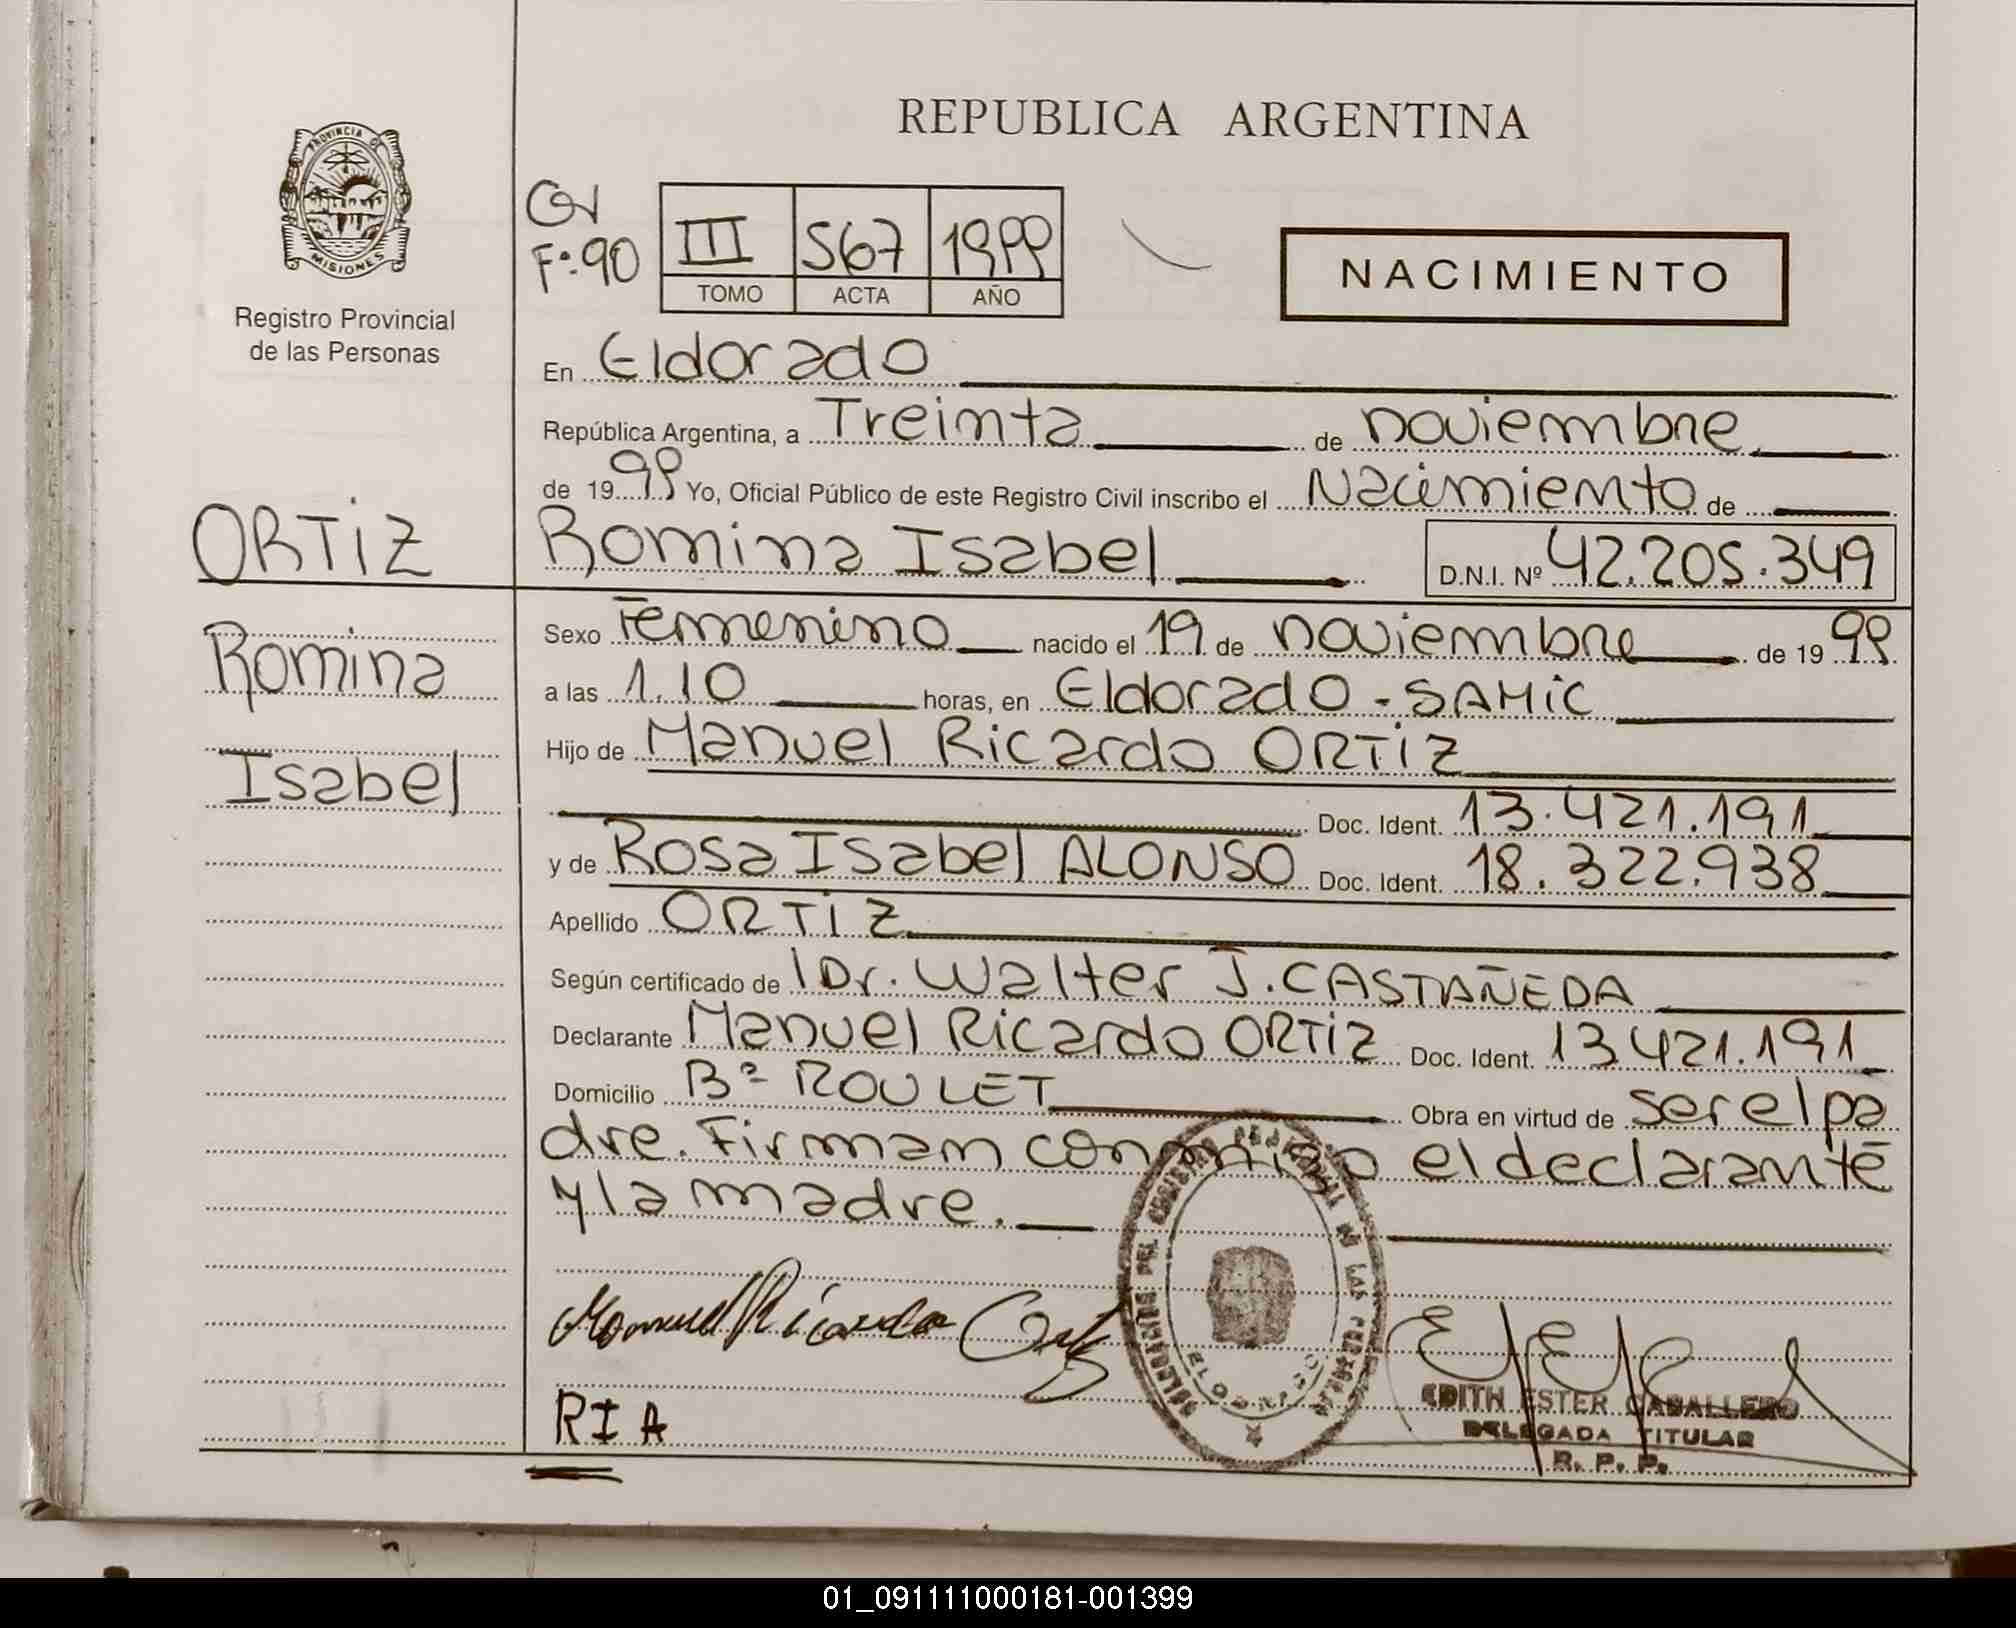 REPUBLICA ARGENTINA
PROVINCIA DE
MISIONES
Registro Provincial
de las Personas
F:90
III 567 1999
TOMO ACTA AÑO
NACIMIENTO
En Eldorado
República Argentina, a Treinta de noviembre
de 1999 Yo, Oficial Público de este Registro Civil inscribo el Nacimiento de
ORTIZ
Romina Isabel D.N.I. Nº 42.205.349
Romina
Isabel
Sexo Femenino nacido el 19 de noviembre de 1999
a las 1.10 horas, en Eldorado - SAMIC
Hijo de Manuel Ricardo ORTIZ
Doc. Ident. 13.421.191
y de Rosa Isabel ALONSO Doc. Ident. 18.322.938
Apellido ORTIZ
Según certificado de Dr. Walter J. CASTAÑEDA
Declarante Manuel Ricardo ORTIZ Doc. Ident. 13.421.191
Domicilio Bº ROULET Obra en virtud de ser el pa
dre. Firman conmigo el declarante
y la madre.
Manuel Ricardo Ortiz
RIA
ELDORADO
EDITH ESTER CABALLERO
DELEGADA TITULAR
R. P. P.
01_091111000181-001399